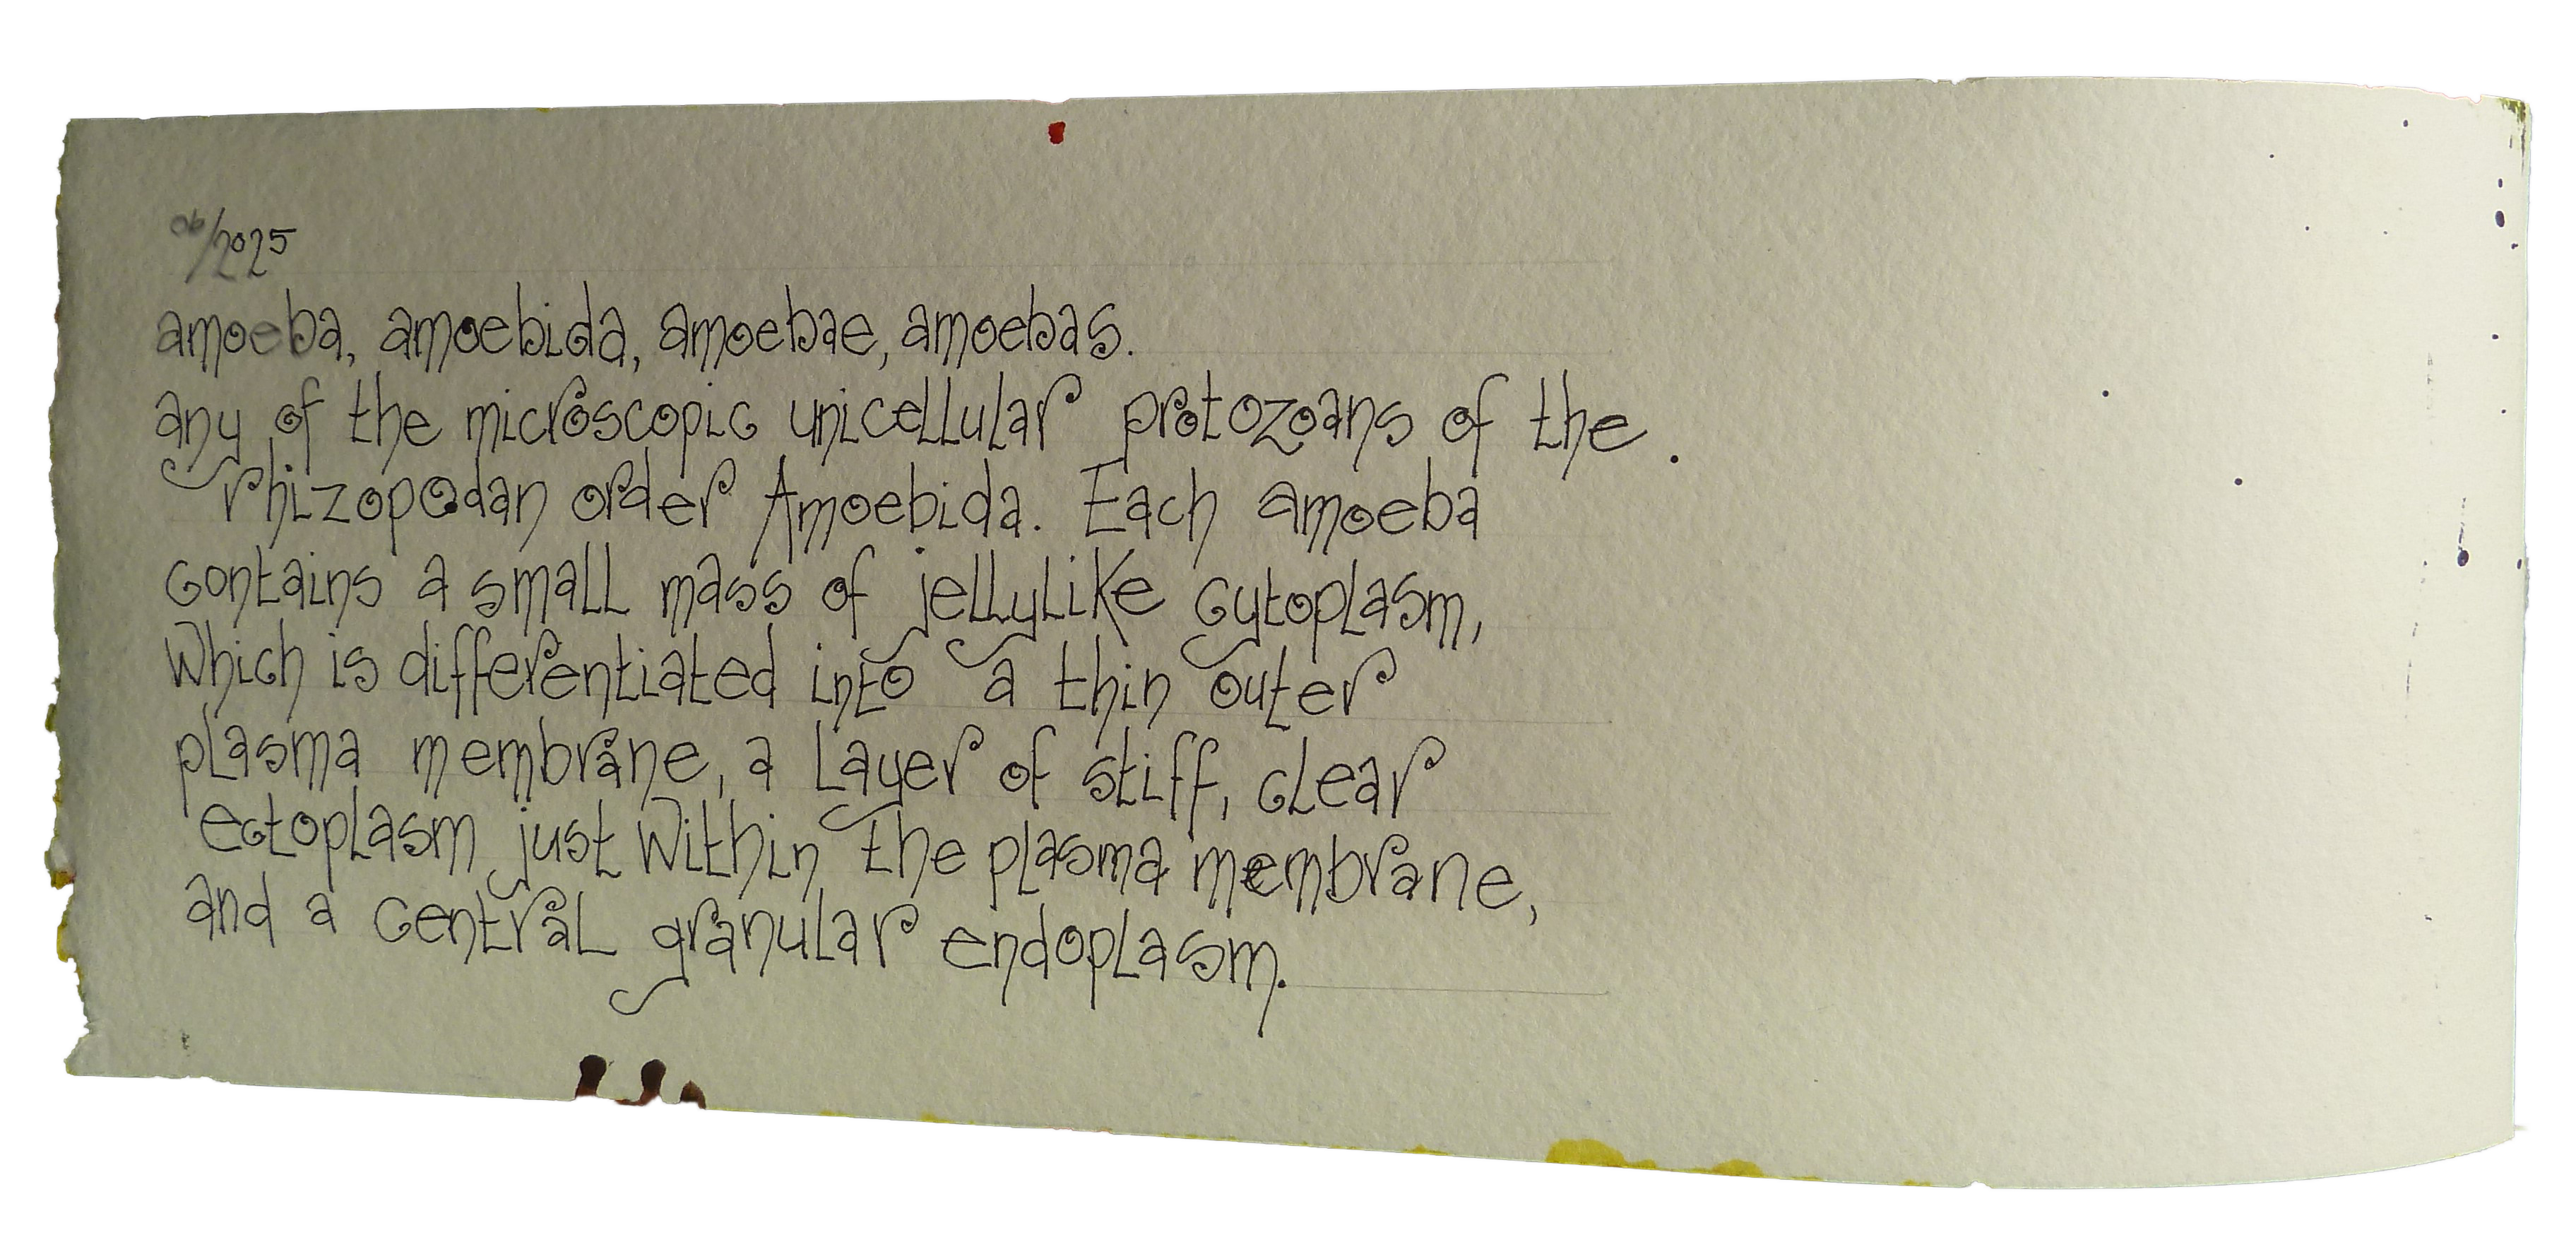 06/2025
amoeba, amoebida, amoebae, amoebas.
any of the microscopic unicellular protozoans of the.
rhizopodan order Amoebida. Each amoeba
contains a small mass of jellylike cytoplasm,
which is differentiated into a thin outer
plasma membrane, a layer of stiff, clear
ectoplasm just within the plasma membrane,
and a central granular endoplasm.